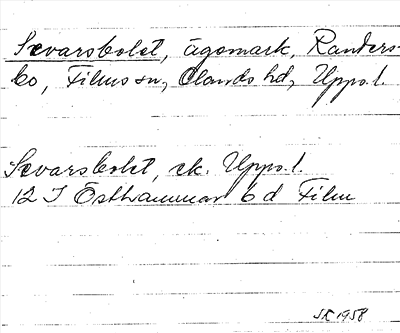 Svarsbolet, ägomark, Randers-
bo, Films sn, Olands hd, Upps. l.
Svarsbolet, ek. Upps. l.
12 I Östhammar 6 d Film
SK 1958